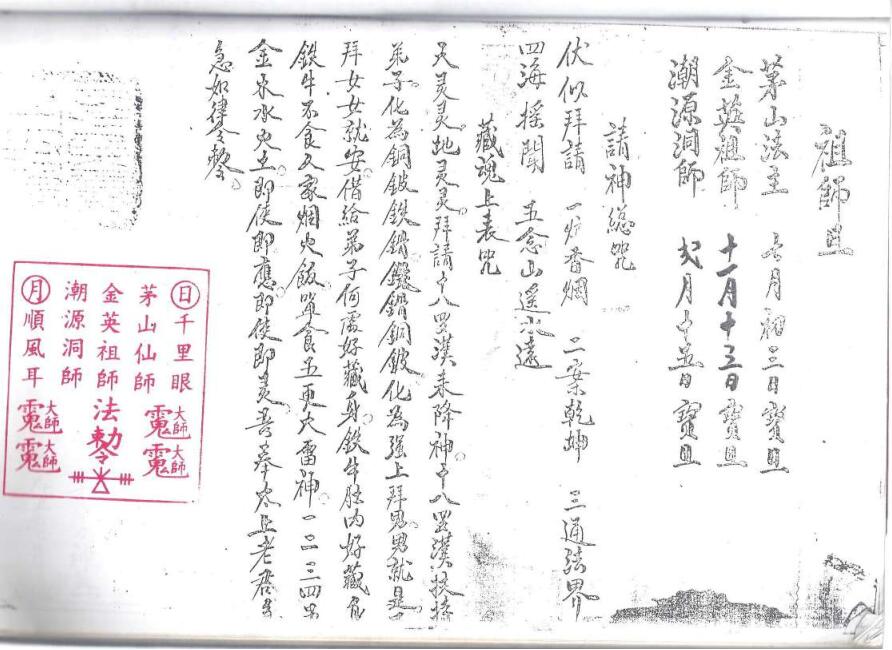 祖師旦
茅山法主 六月初三日寶旦
金英祖師 十一月十三日寶旦
潮源洞師 月十五日寶旦
請神總咒
伏似拜請 一炉香烟 二案乾坤 三通法界
四海採聞 五念山遥水遠
藏魂上表咒
天灵灵地灵灵拜請十八罗漢來降神十八罗漢扶
弟子化為銅鈹鉄銅鈹化為强上拜男男就是
拜女女就安借給弟子何處好藏身鉄牛肚内好藏
鉄牛不食人家烟火飯單食五更天雷神一二三四
金木水火土即使即應即使即灵吾奉太上老君
急如律令
日千里眼
茅山仙師
金英祖師法
潮源洞師
月順風耳
大師
大師
大師
大師